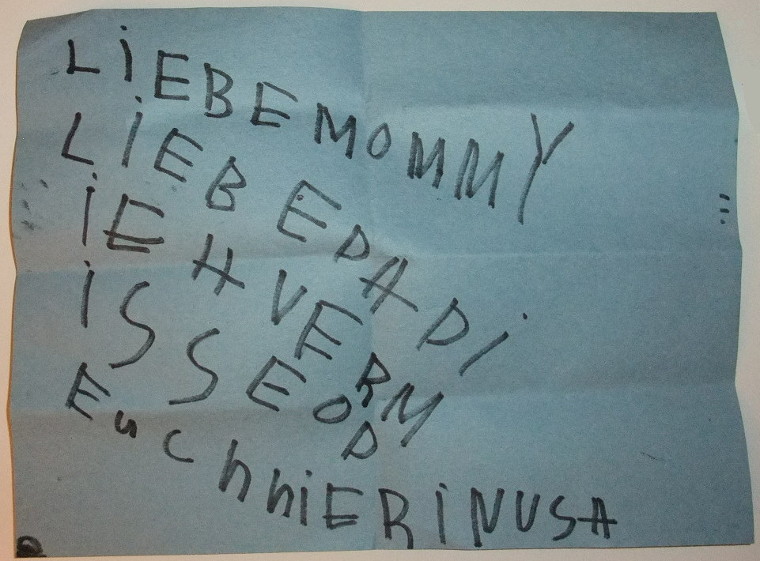 LiEBE MOMMY
LiEB E DADi
iE H VERM
iSSE OD
EuCh hiER iN USA